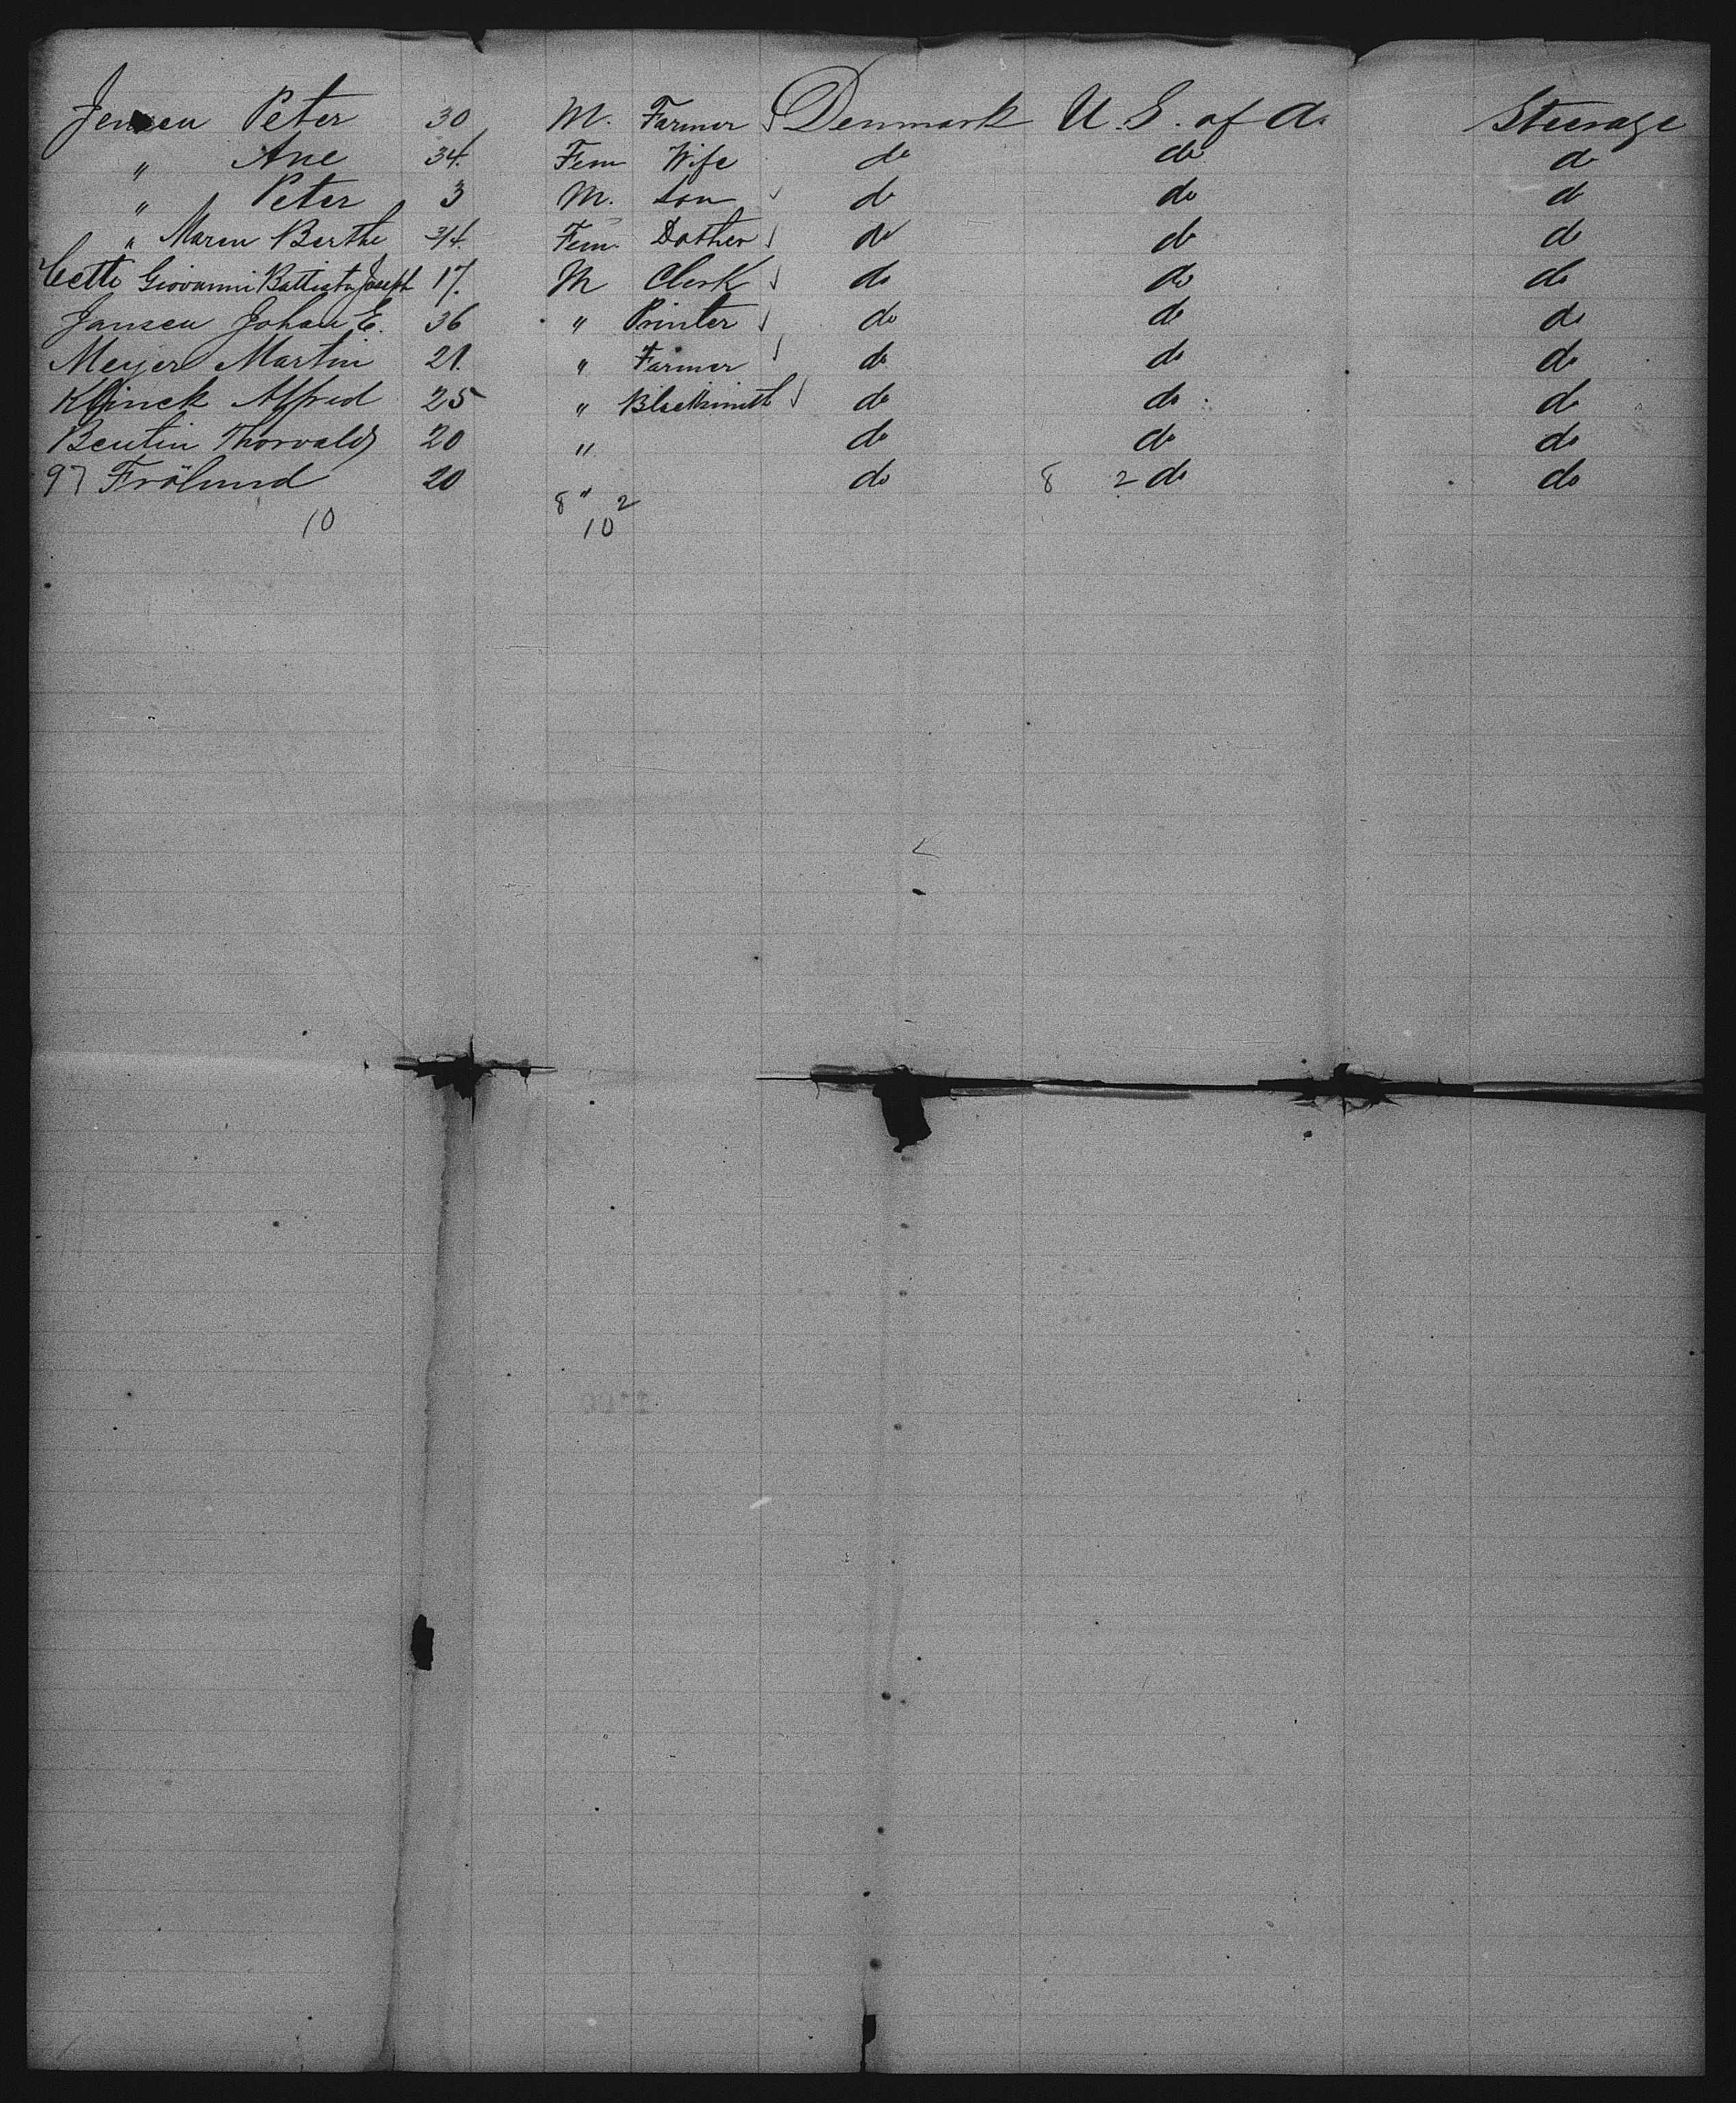 Jensen Peter 30 M. Farmer Denmark U.S. of A. Steerage
" Ane 34. Fem Wife do do do
" Peter 3 M. Son do do do
" Maren Berthe 3/4. Fem. Dother do do do
Cetti Giovanni Battista Joseph 17. M Clerk do do do
Jansen Johan E. 36 " Printer do do do
Meyer Martin 21. " Farmer do do do
Klinck Alfred 25 " Blacksmith do do do
Bentin Thorvald 20 " do do do
97 Frölund 20 " do 8 2 do do
8 2
10 10